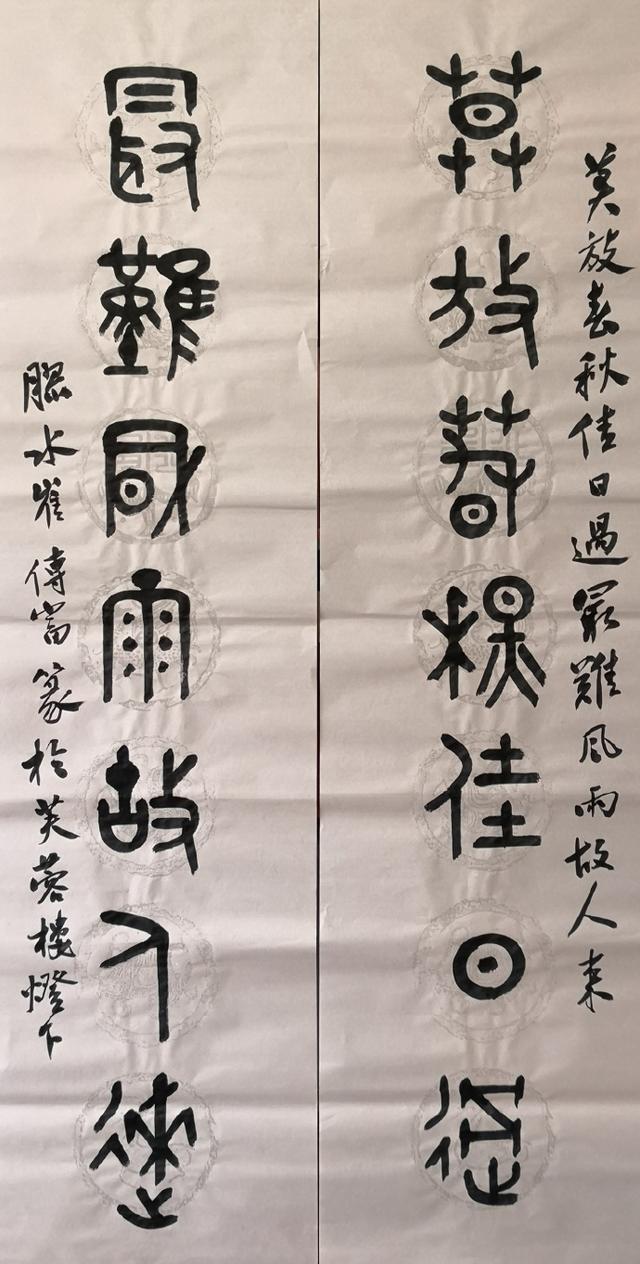 莫放春秋佳日過最難風雨故人來
莫放春秋佳日過
最難風雨故人來
水崔傳富篆於芙蓉樓燈下